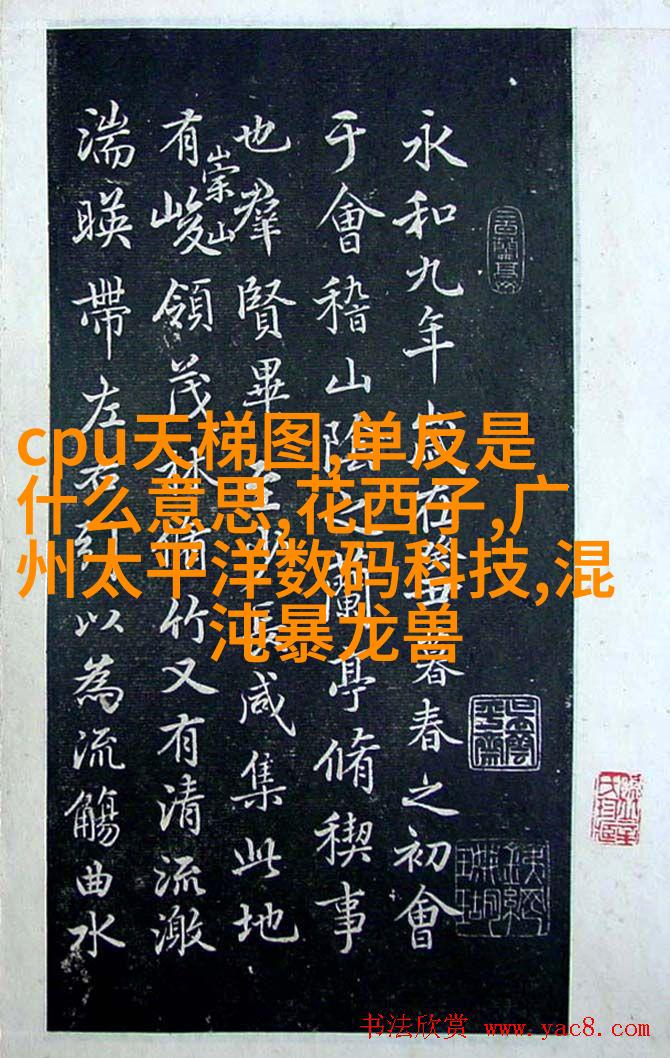 永和九年歲在癸丑暮春之初會
于會稽山陰之蘭亭脩稧事
也羣賢畢至少長咸集此地
有崇山峻領茂林脩竹又有清流激
湍暎帶左右引以為流觴曲水
cpu天梯图,单反是
什么意思,花西子,广
州太平洋数码科技,混
沌暴龙兽
书法欣赏 www.yac8.com